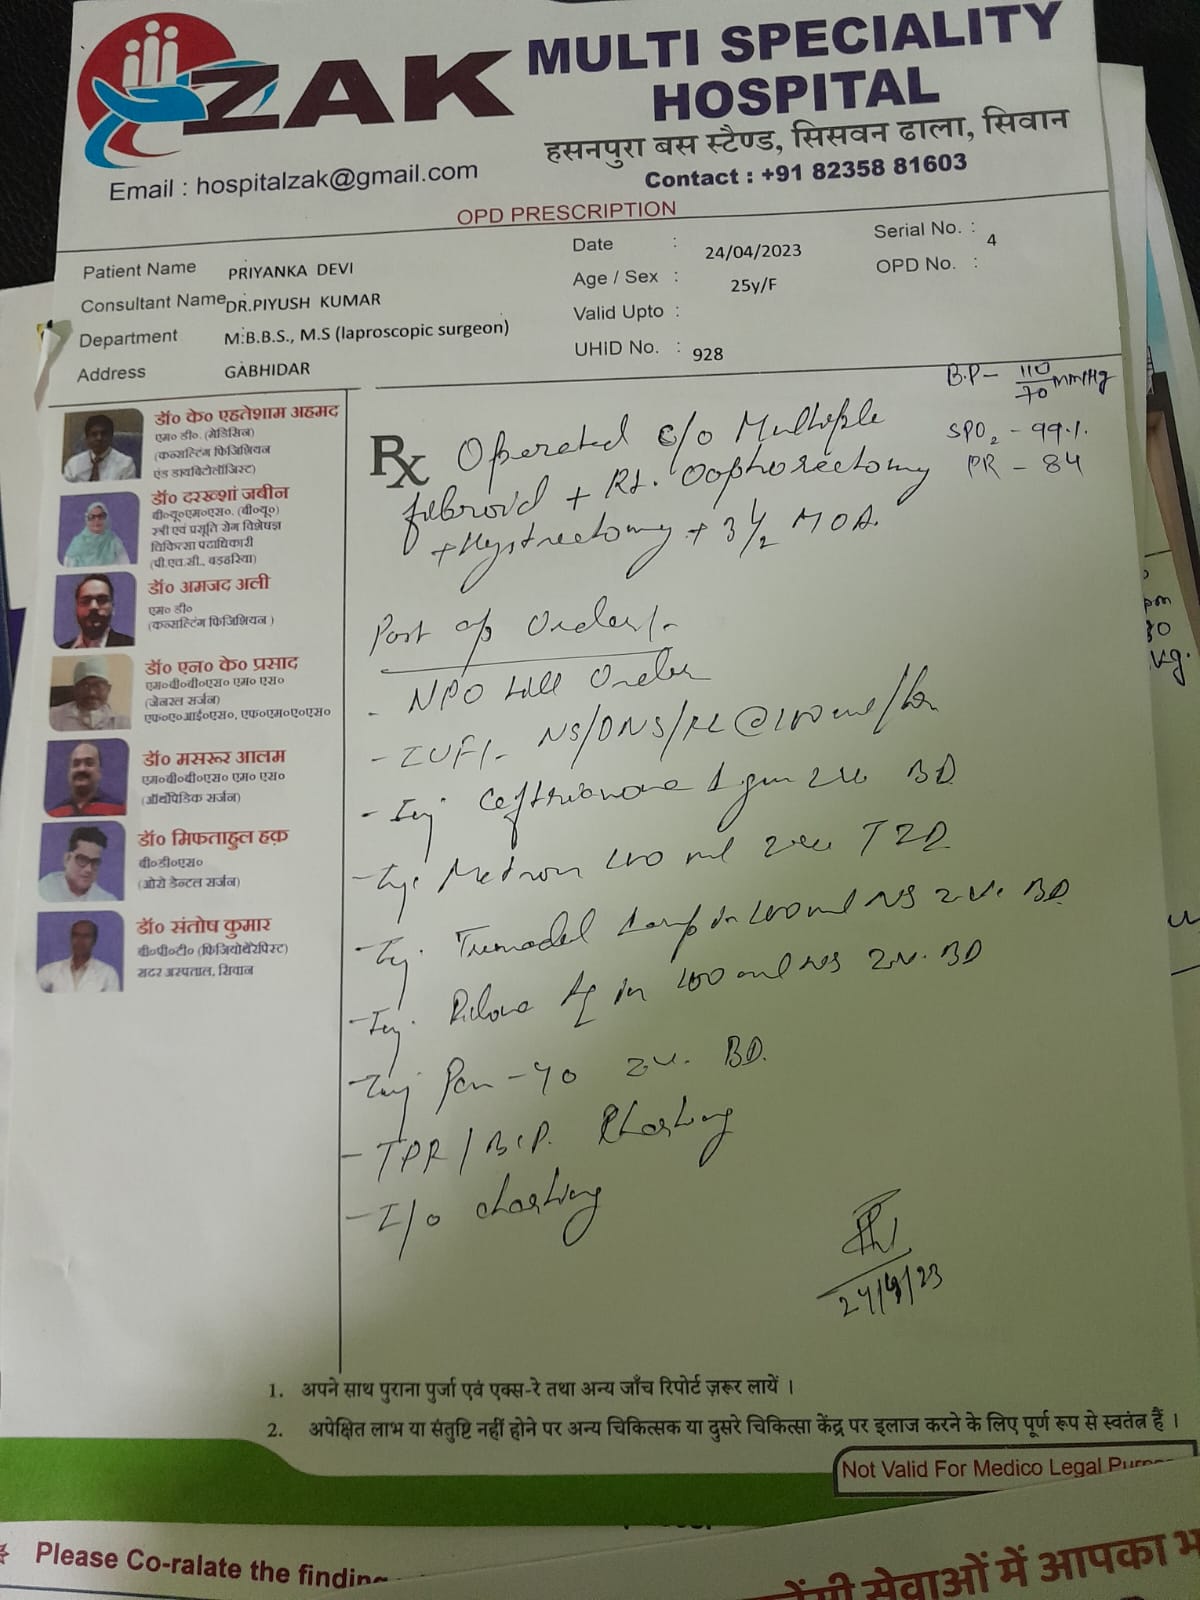 ZAK
MULTI SPECIALITY
HOSPITAL
हसनपुरा बस स्टैण्ड, सिसवन ढाला, सिवान
Email : hospitalzak@gmail.com
Contact : +91 82358 81603
OPD PRESCRIPTION
Patient Name PRIYANKA DEVI
Consultant Name DR.PIYUSH KUMAR
Department M.B.B.S., M.S (laproscopic surgeon)
Address GABHIDAR
Date : 24/04/2023
Age / Sex : 25y/F
Valid Upto :
UHID No. : 928
Serial No. : 4
OPD No. :
B.P - 110/70 mmHg
SPO2 - 99%
PR - 84
डॉ० के० एहतेशाम अहमद
एम० डी० (मेडिसिन)
(कन्सल्टिंग फिजिशियन
एंड डायबिटोलॉजिस्ट)
डॉ० दरख्शां जबीन
बी०यू०एम०एस०. (बी०यू०)
स्त्री एवं प्रसूति रोग विशेषज्ञ
चिकित्सा पदाधिकारी
(पी.एच.सी., बड़हरिया)
डॉ० अमजद अली
एम० डी०
(कन्सल्टिंग फिजिशियन )
डॉ० एन० के० प्रसाद
एम०बी०बी०एस० एम० एस०
(जेनरल सर्जन)
एफ०ए०आई०एस०, एफ०एम०ए०एस०
डॉ० मसरूर आलम
एम०बी०बी०एस० एम० एस०
(ऑर्थोपेडिक सर्जन)
डॉ० मिफताहुल हक़
बी०डी०एस०
(ओरो डेन्टल सर्जन)
डॉ० संतोष कुमार
बी०पी०टी० (फिजियोथेरेपिस्ट)
सदर अस्पताल, सिवान
Rx Operated c/o Multiple
fibroid + Rt. Oophorectomy
+ Hystrectomy + 3 1/2 MOA.
Post op Order/-
- NPO till Order
- IVF/- NS/DNS/RL @ 100 ml/hr
- Inj Ceftriaxone 1 gm I.V. BD
- Inj. Metron 100 ml I.V. TID
- Inj. Tramadol 1 amp in 100 ml NS I.V. BD
- Inj. in 100 ml NS I.V. BD
- Inj Pan-40 I.V. BD.
- TPR / B.P. Charting
- I/o charting
24/4/23
1. अपने साथ पुराना पुर्जा एवं एक्स-रे तथा अन्य जाँच रिपोर्ट ज़रूर लायें ।
2. अपेक्षित लाभ या संतुष्टि नहीं होने पर अन्य चिकित्सक या दुसरे चिकित्सा केंद्र पर इलाज करने के लिए पूर्ण रूप से स्वतंत्र हैं ।
Not Valid For Medico Legal
Please Co-ralate the finding
सेवाओं में आपका